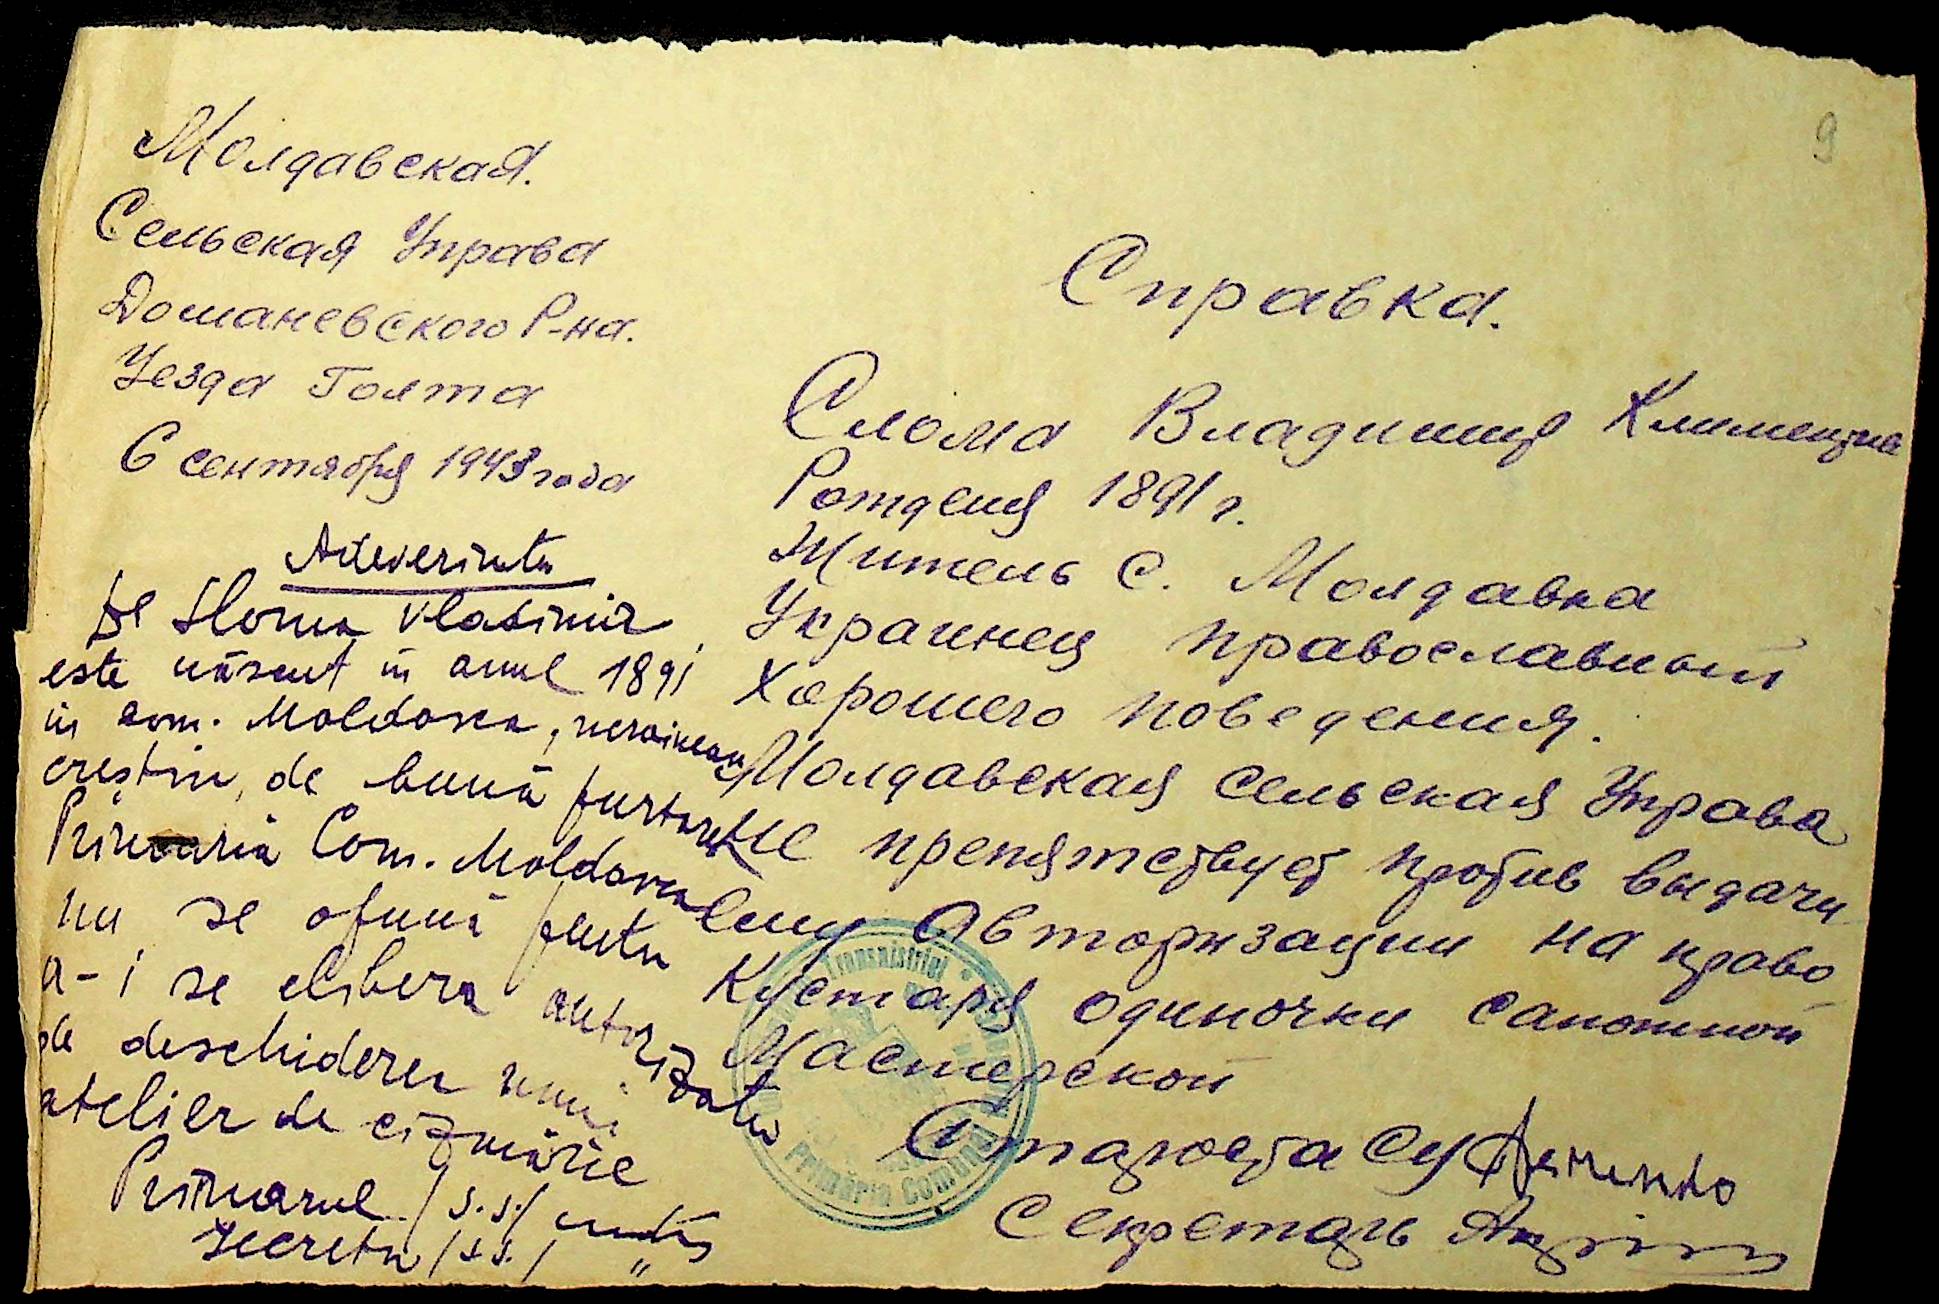 9
Молдавская.
Сельская Управа
Доманевского Р-на.
Уезда Голта
6 сентября 1943 года
Справка.
Слома Владимир
Рождения 1891 г.
Житель С. Молдавка
Украинец православный
Хорошего поведения.
Молдавская сельская Управа
Не препятствует против выдачи
ему Авторизации на право
Кустаря одиночки сапожной
Мастерской
Староста СУ
Секретарь
Adeverinta
Sloma Vladimir
este născut în anul 1891
in com. Moldovca, ucrainean
creștin, de bună purtare
Primăria Com. Moldovca
nu se opună pentru
a-i se elibera autorizatia
de deschiderea unui
atelier de cizmărie
Primarul /s.s./
Secretar /ss./ "
Transnistriei
Primăria Comunei